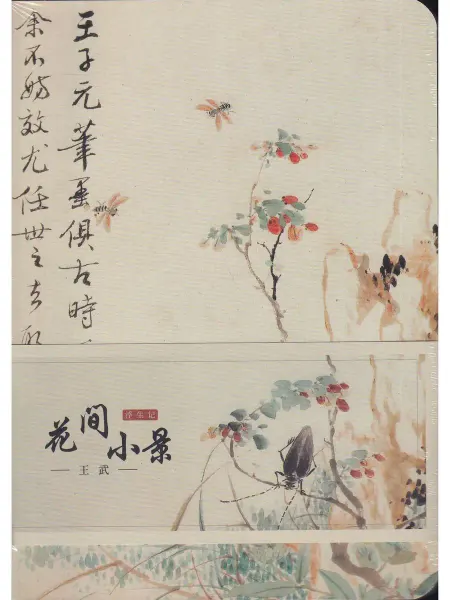 王子元筆墨俱古時
余不妨效尤任世之
浮生记
花间小景
王武